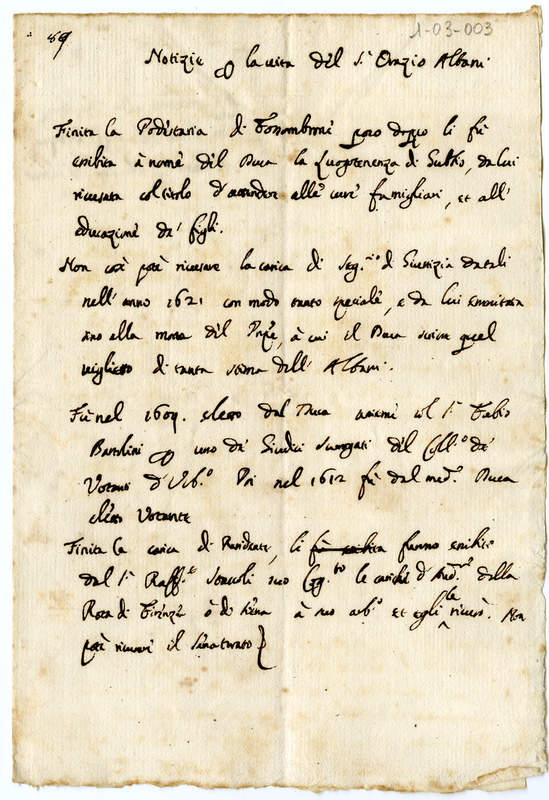 89
1-03-003
Notizie p la uita del S.r Orazio Albani
Finita la Podestaria di Fossombrone poco doppo li fù
esibita à nome del Duca la Luogotenenza di Gubbio, da lui
ricusata col titolo d'attendere alle cure famigliari, et all'
educazione de' figli.
Non così potè ricusare la carica di Seg.rio di Giustizia datali
nell'anno 1621 con modo tanto speciale, e da lui esercitata
sino alla morte del Prpe, à cui il Duca scrisse quel
uiglietto di tanta stima dell'Albani.
Fù nel 1609. eletto dal Duca assieme col S.r Febo
Bartolini p uno de Giudici surrogati del Coll.o de
Votanti d'Urb.o Poi nel 1612 fù dal med.o Duca
eletto Votante
Finita la carica di Residente, li fù esibita furono esibite
dal S.r Raff. suo le cariche d' della
Rota di Firenze ò di Siena à suo arb.o et egli le ricusò. Non
potè ricusare il